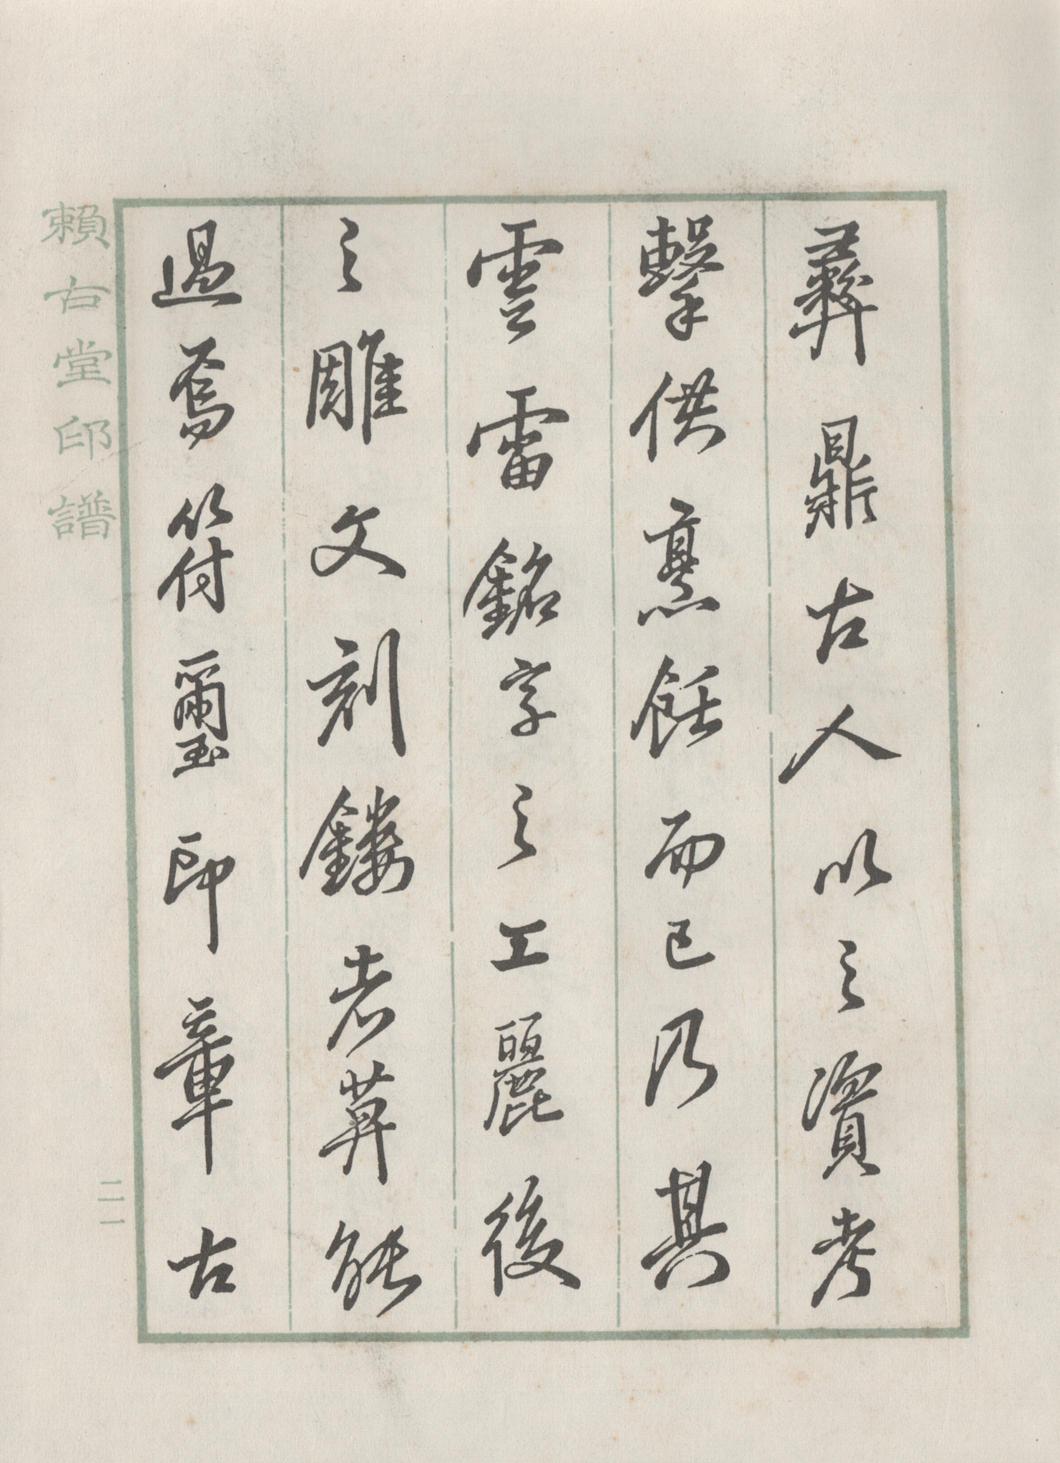 彝鼎古人以之資考
擊供烹飪而已乃其
雲雷銘字之工麗後
之雕文刻鏤者莫能
過焉符璽印章古
賴古堂印譜
二一